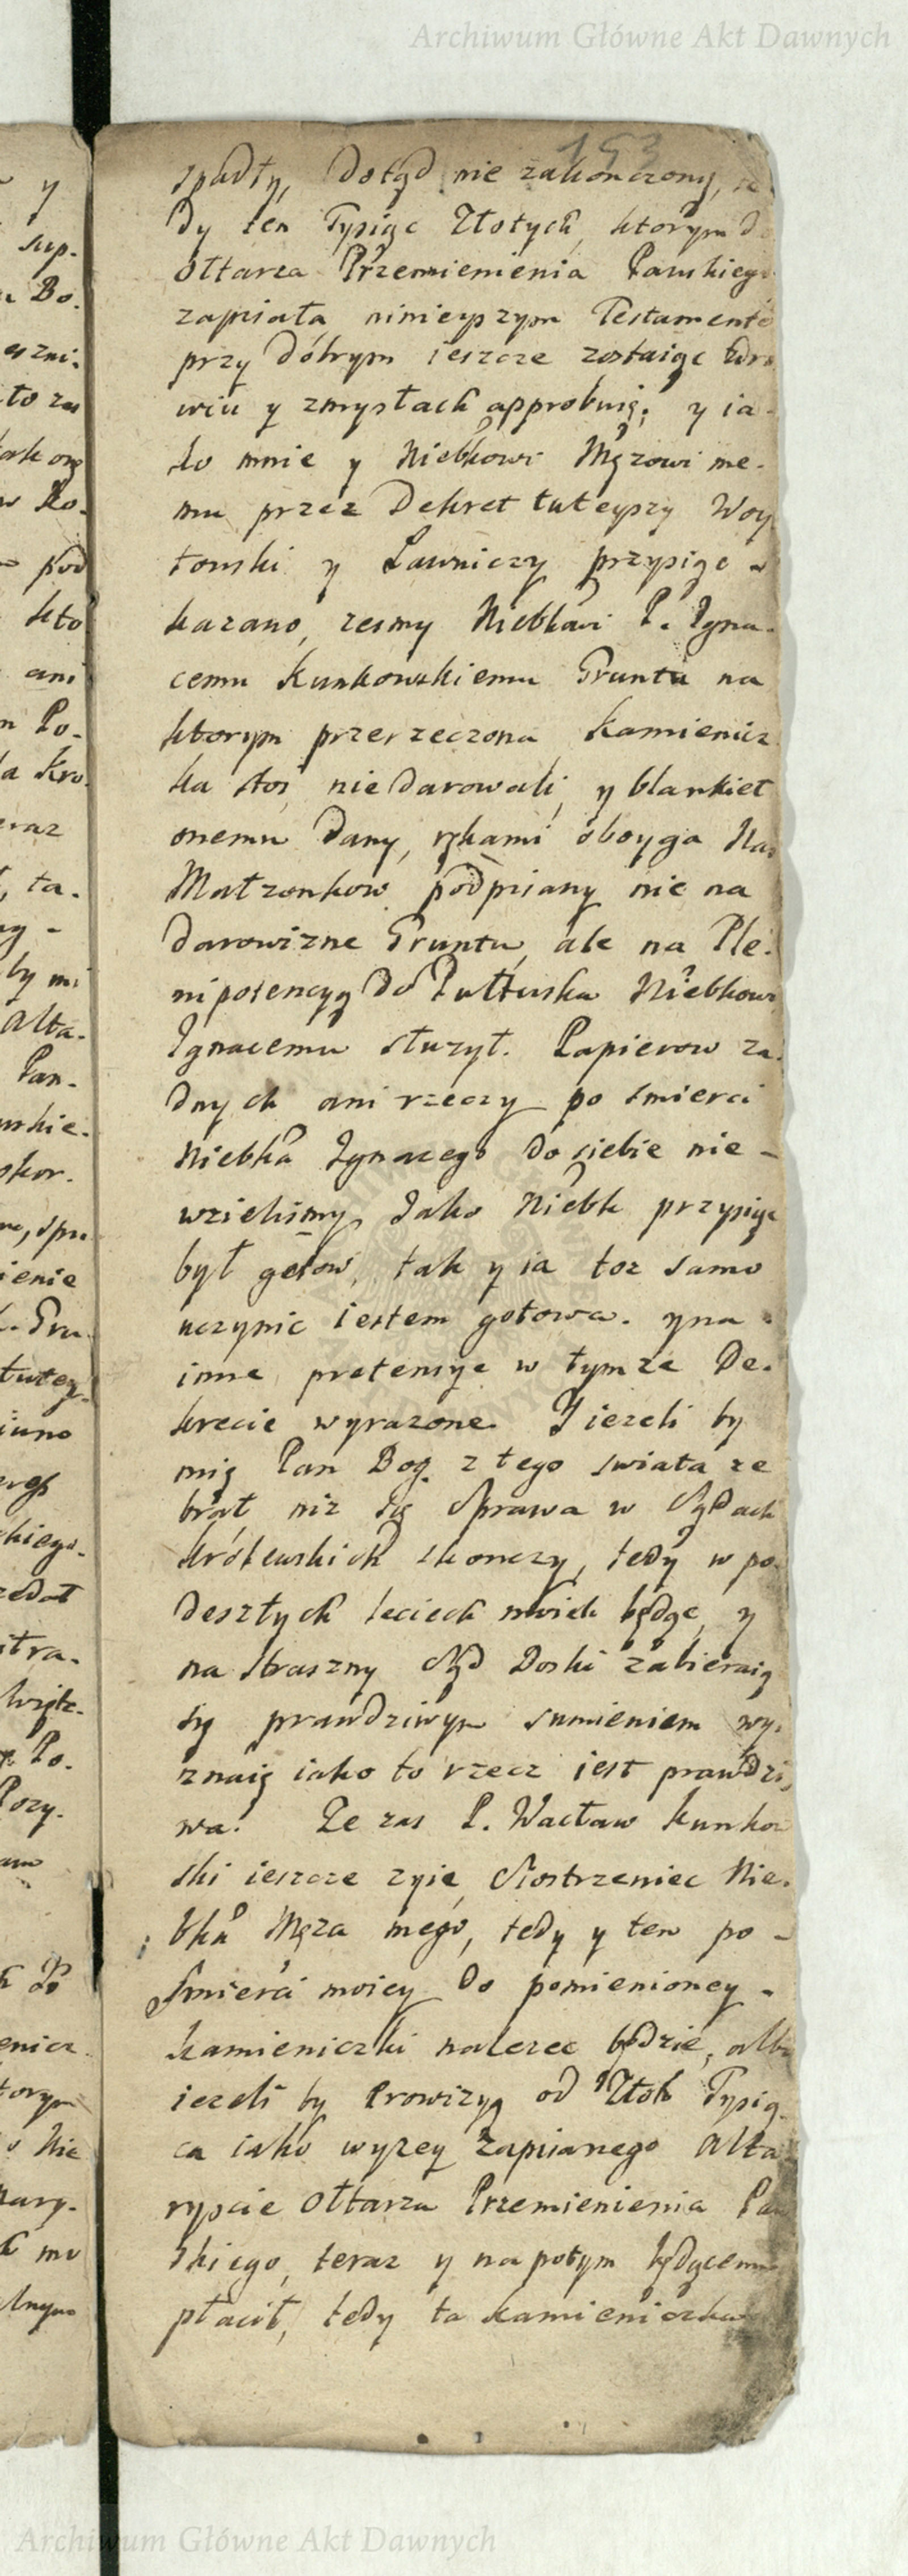 Archiwum Główne Akt Dawnych
153
spadły, dotąd nie zakonczony, te
dy ten Tysiąc Złotych, ktorym do
Ołtarza Przemienienia Panskiego
zapisała ninieyszym Testamente
przy dóbrym ieszcze zostaiąc zdro
wiu y zmysłach approbuię; y ia-
ko mnie y Niebkowi Mężowi me-
mu przez Dekret tuteyszy Woy
towski y Ławniczy przysiąc -
kazano, zesmy Niebkowi P. Igna-
cemu Kunkowskiemu Gruntu na
ktorym przerzeczona Kamienicz
ka stoi, nie darowali, y blankiet
onemu dany, rękami oboyga Nas
Małzonkow podpisany nie na
darowizne Gruntu, ale na Ple-
nipotencyą do Pułtuska Niebkowi
Ignacemu słuzył. Papierow za-
dnych ani rzeczy po smierci
Niebka Ignacego do siebie nie -
wzielismy, Jako Niebk przysiąc
był gotow, tak y ia toz samo
uczynic iestem gotowa. y na
inne pretensye w tymze De-
krecie wyrazone. Jiezeli by
mię Pan Bog z tego swiata ze
brał niz się Sprawa w Sądach
Królewskich skonczy, tedy w po-
deszłych leciech moich będąc, y
na straszny Sąd Boski zabieraią
się prawdziwym sumieniem wy-
znaię iako to rzecz iest prawdzi
wa. Ze zas P. Wacław Kunkow
ski ieszcze zyie, Siostrzeniec Nie-
bka Męza mego, tedy y ten po -
Smierci moiey do pomienioney -
kamieniczki nalezec będzie, albo
iezeli by Prowizyą od Złoth Tysią
ca iako wyzey zapisanego Alta
rysscie Ołtarza Przemienienia Pan
skiego, teraz y na potym będącemu
płacił, tedy ta kamieniczka
y
sup-
Bo-
to zas
Ko-
pod
kto
ani
Po-
Kro-
ta-
by mi
Alta-
Pan-
skie-
skor-
ienie
Gru-
tutey-
kiego-
stra-
Po-
enicz
torym
Nie
Archiwum Główne Akt Dawnych